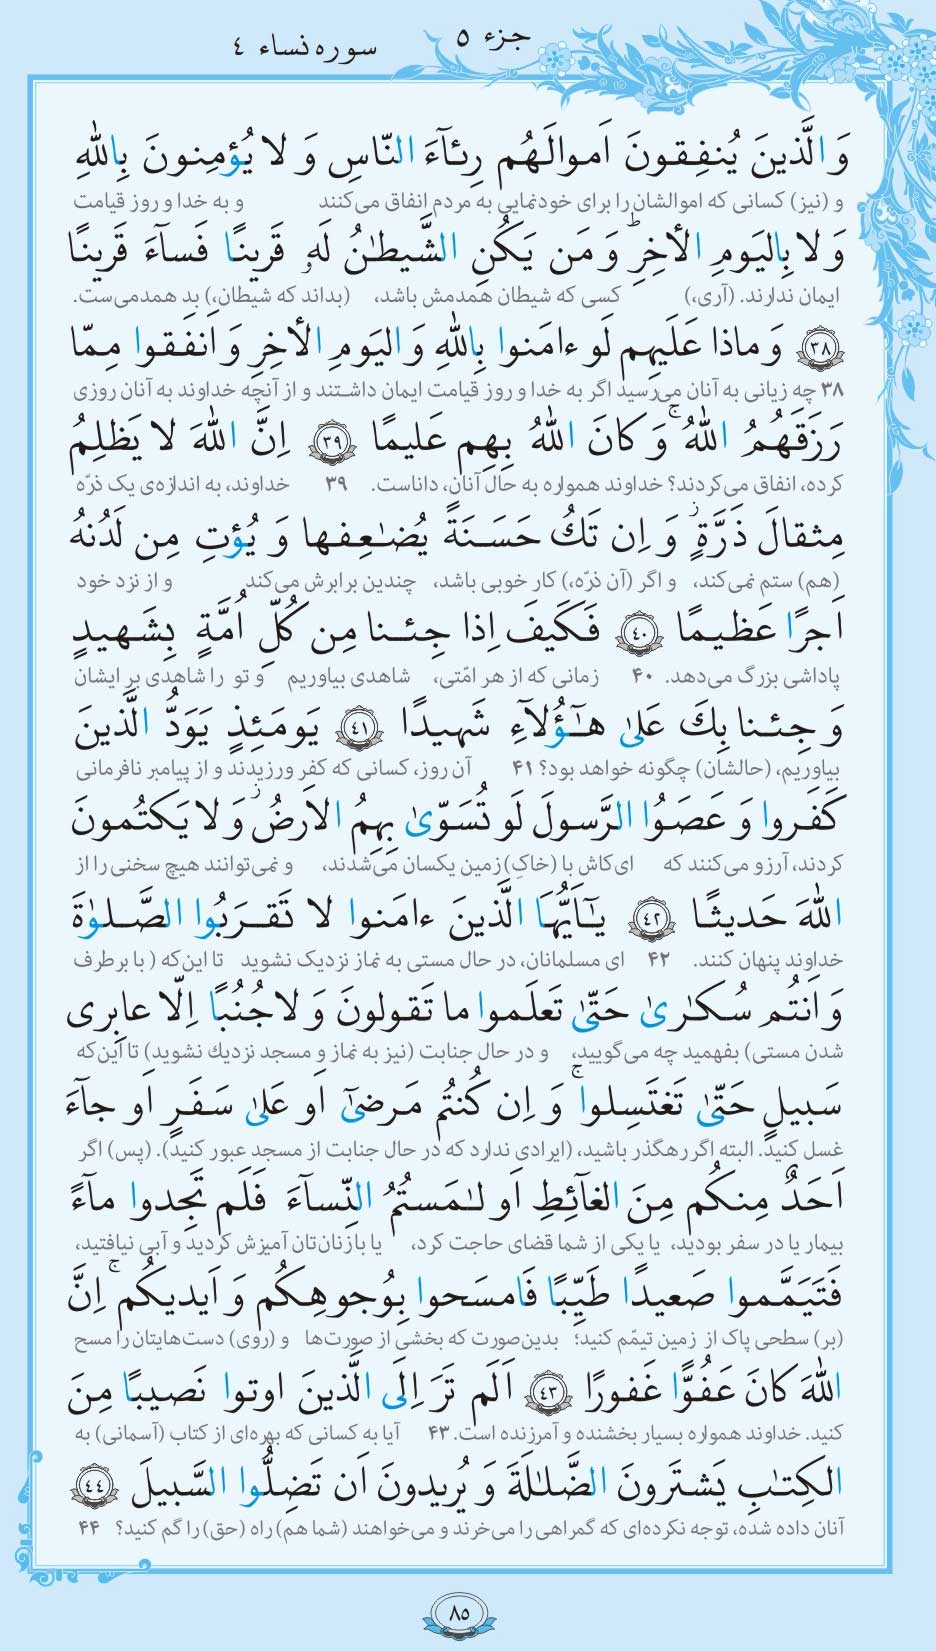 جزء ۵
سوره نساء ۴
وَ الَّذینَ یُنفِقونَ اَموالَهُم رِئآءَ النّاسِ وَ لا یُؤمِنونَ بِاللهِ
و (نیز) کسانی که اموالشان را برای خودنمایی به مردم انفاق می‌کنند و به خدا و روز قیامت
وَ لا بِالیَومِ الأخِرِ ۗ وَ مَن یَکُنِ الشَّیطٰنُ لَهُۥ قَرینًا فَسآءَ قَرینًا
ایمان ندارند. (آری،) کسی که شیطان همدمش باشد، (بداند که شیطان،) بد همدمی‌ست.
﴿۳۸﴾ وَ ماذا عَلَیهِم لَو ءامَنوا بِاللهِ وَ الیَومِ الأخِرِ وَ اَنفَقوا مِمّا
۳۸ چه زیانی به آنان می‌رسید اگر به خدا و روز قیامت ایمان داشتند و از آنچه خداوند به آنان روزی
رَزَقَهُمُ اللهُ ۚ وَ کانَ اللهُ بِهِم عَلیمًا ﴿۳۹﴾ اِنَّ اللهَ لا یَظلِمُ
کرده، انفاق می‌کردند؟ خداوند همواره به حال آنان، داناست. ۳۹ خداوند، به اندازه‌ی یک ذرّه
مِثقالَ ذَرَّةٍ ۖ وَ اِن تَکُ حَسَنَةً یُضٰعِفها وَ یُؤتِ مِن لَدُنهُ
(هم) ستم نمی‌کند، و اگر (آن ذرّه،) کار خوبی باشد، چندین برابرش می‌کند و از نزد خود
اَجرًا عَظیمًا ﴿۴۰﴾ فَکَیفَ اِذا جِئنا مِن کُلِّ اُمَّةٍ بِشَهیدٍ
پاداشی بزرگ می‌دهد. ۴۰ زمانی که از هر امّتی، شاهدی بیاوریم و تو را شاهدی بر ایشان
وَ جِئنا بِکَ عَلیٰ هٰٓؤُلآءِ شَهیدًا ﴿۴۱﴾ یَومَئِذٍ یَوَدُّ الَّذینَ
بیاوریم، (حالشان) چگونه خواهد بود؟ ۴۱ آن روز، کسانی که کفر ورزیدند و از پیامبر نافرمانی
کَفَروا وَ عَصَوُا الرَّسولَ لَو تُسَوّیٰ بِهِمُ الاَرضُ ۖ وَ لا یَکتُمونَ
کردند، آرزو می‌کنند که ای‌کاش با (خاکِ) زمین یکسان می‌شدند، و نمی‌توانند هیچ سخنی را از
اللهَ حَدیثًا ﴿۴۲﴾ یٰٓاَیُّهَا الَّذینَ ءامَنوا لا تَقرَبُوا الصَّلوٰةَ
خداوند پنهان کنند. ۴۲ ای مسلمانان، در حال مستی به نماز نزدیک نشوید تا این‌که ( با برطرف
وَ اَنتُم سُکٰریٰ حَتّیٰ تَعلَموا ما تَقولونَ وَ لا جُنُبًا اِلّا عابِری
شدن مستی) بفهمید چه می‌گویید، و در حال جنابت (نیز به نماز و مسجد نزدیك نشوید) تا این‌که
سَبیلٍ حَتّیٰ تَغتَسِلوا ۚ وَ اِن کُنتُم مَرضیٰٓ اَو عَلیٰ سَفَرٍ اَو جآءَ
غسل کنید. البته اگر رهگذر باشید، (ایرادی ندارد که در حال جنابت از مسجد عبور کنید). (پس) اگر
اَحَدٌ مِنکُم مِنَ الغآئِطِ اَو لٰمَستُمُ النِّسآءَ فَلَم تَجِدوا مآءً
بیمار یا در سفر بودید، یا یکی از شما قضای حاجت کرد، یا با زنان‌تان آمیزش کردید و آبی نیافتید،
فَتَیَمَّموا صَعیدًا طَیِّبًا فَامسَحوا بِوُجوهِکُم وَ اَیدیکُم ۚ اِنَّ
(بر) سطحی پاک از زمین تیمّم کنید؛ بدین‌صورت که بخشی از صورت‌ها و (روی) دست‌هایتان را مسح
اللهَ کانَ عَفُوًّا غَفورًا ﴿۴۳﴾ اَلَم تَرَ اِلَی الَّذینَ اوتوا نَصیبًا مِنَ
کنید. خداوند همواره بسیار بخشنده و آمرزنده است. ۴۳ آیا به کسانی که بهره‌ای از کتاب (آسمانی) به
الکِتٰبِ یَشتَرونَ الضَّلٰلَةَ وَ یُریدونَ اَن تَضِلُّوا السَّبیلَ ﴿۴۴﴾
آنان داده شده، توجه نکرده‌ای که گمراهی را می‌خرند و می‌خواهند (شما هم) راه (حق) را گم کنید؟ ۴۴
۸۵